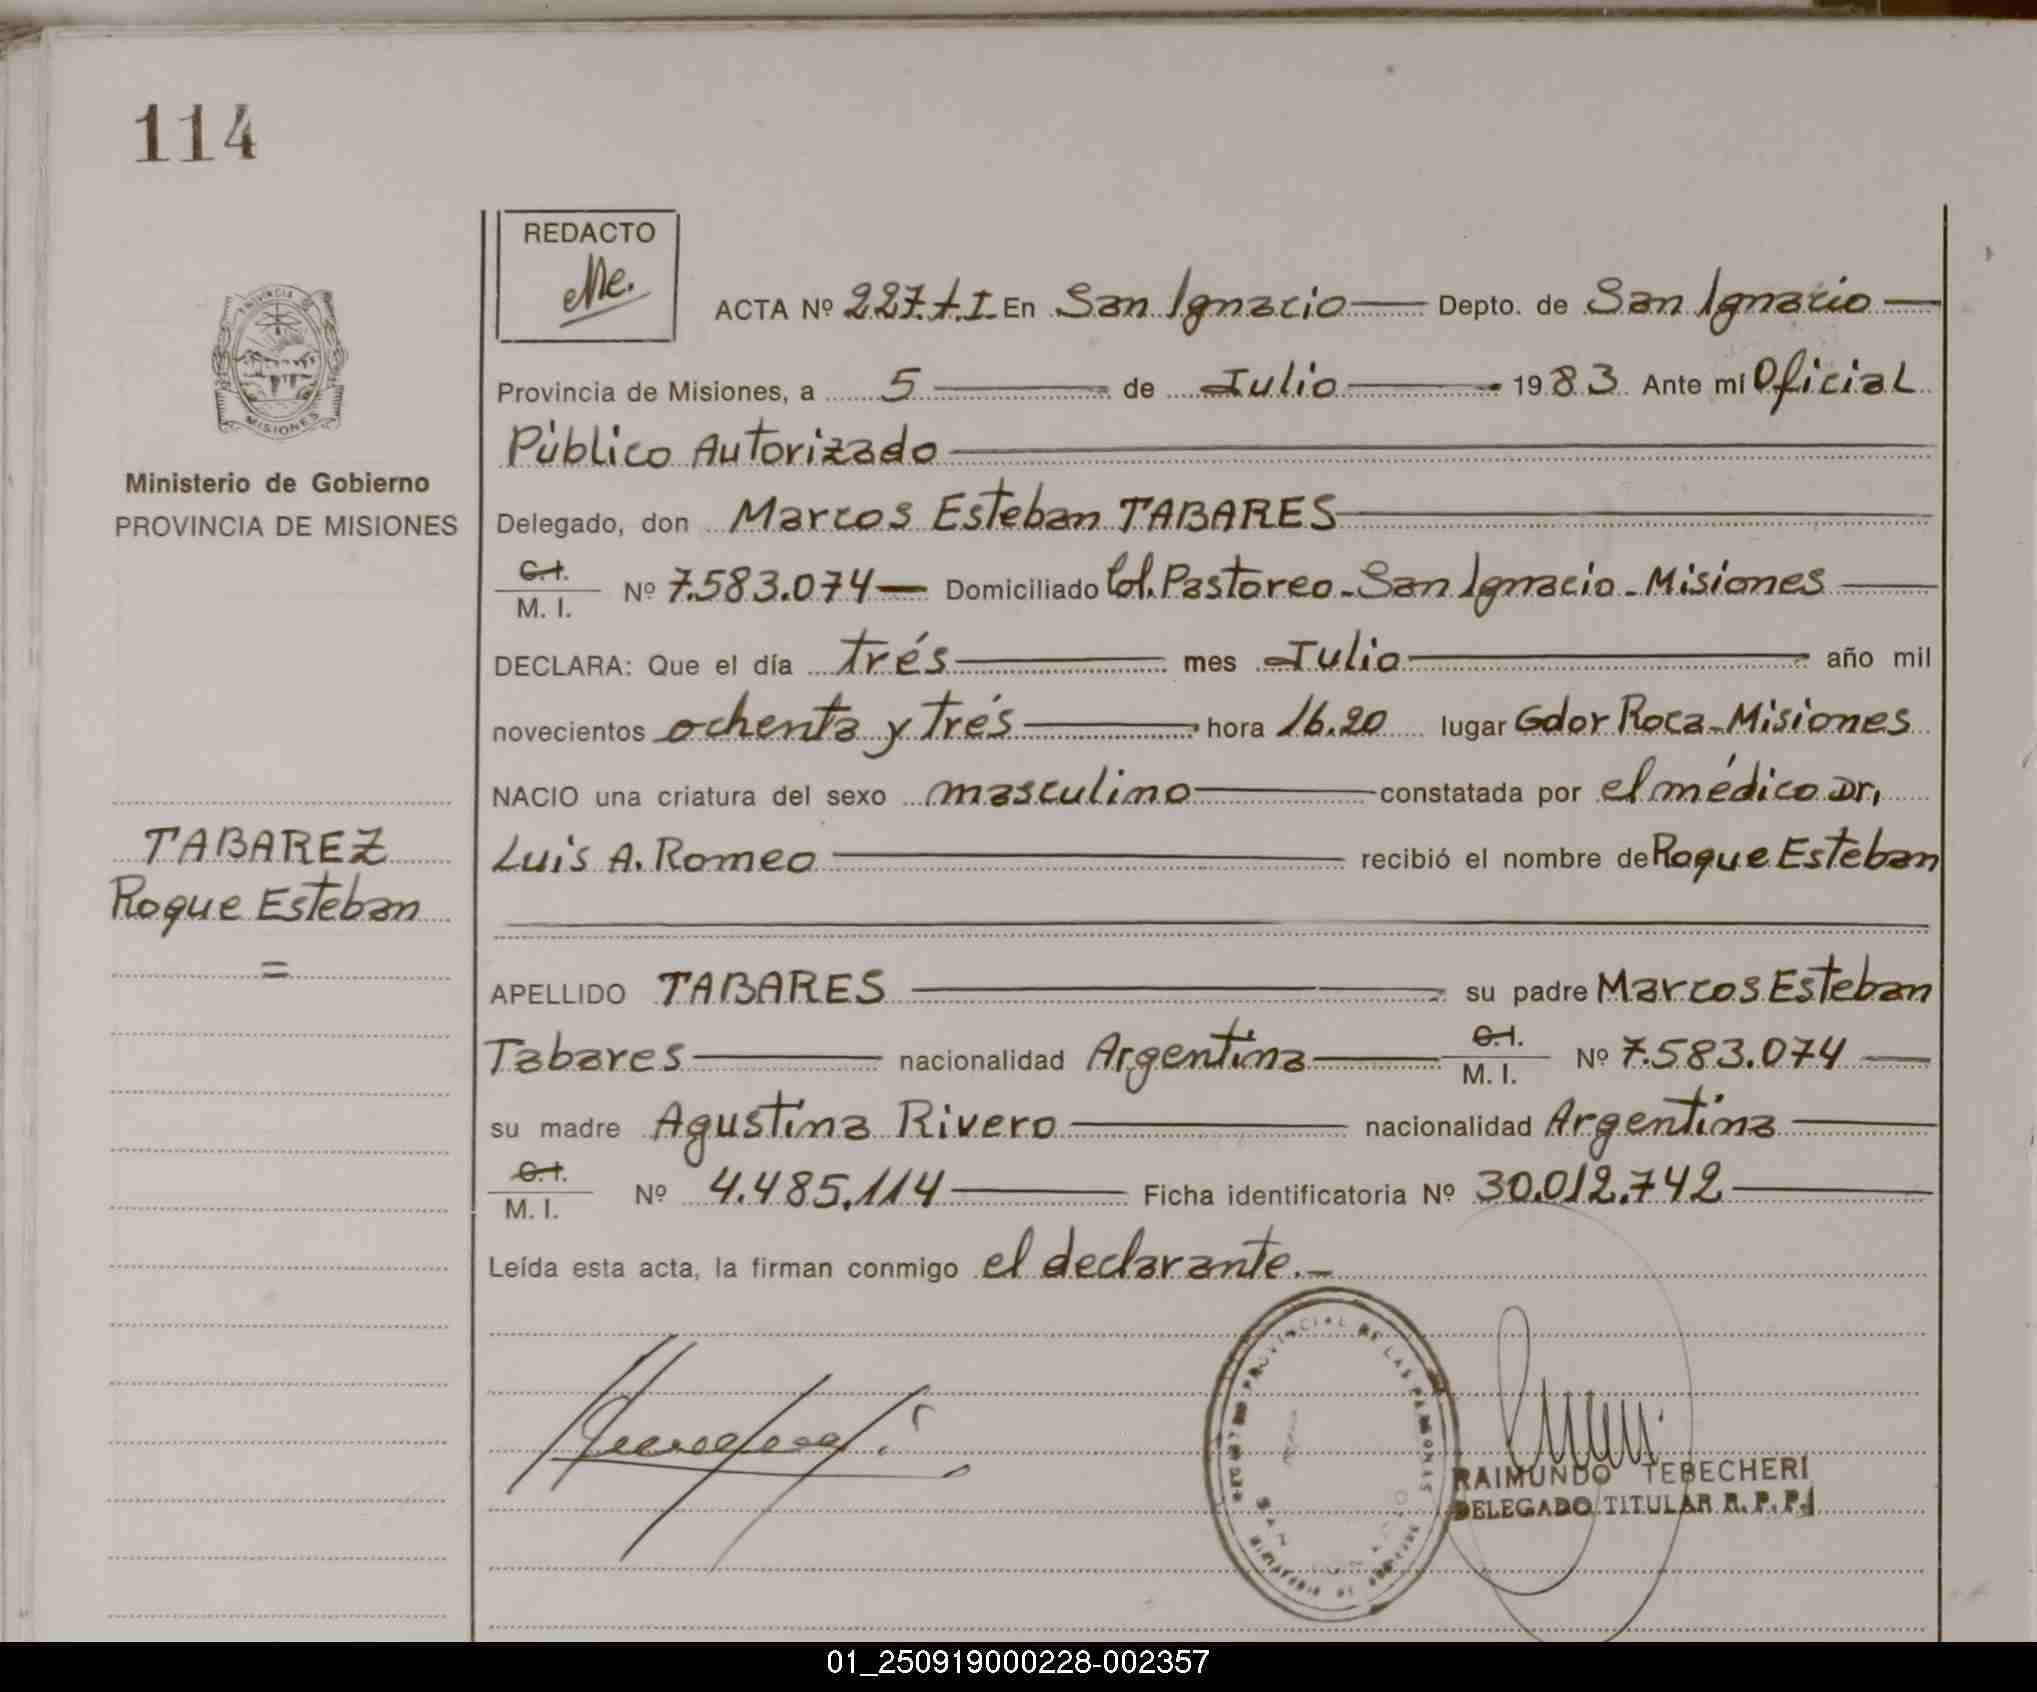 114
REDACTO
Me.
ACTA Nº 227.t.I En San Ignacio Depto. de San Ignacio
Provincia de Misiones, a 5 de Julio 1983 Ante mí Oficial
Público Autorizado
Delegado, don Marcos Esteban TABARES
C.I. M.I. Nº 7.583.074 Domiciliado Col. Pastoreo - San Ignacio - Misiones
DECLARA: Que el día trés mes Julio año mil
novecientos ochenta y trés hora 16.20 lugar Gdor Roca - Misiones
NACIO una criatura del sexo masculino constatada por el médico Dr,
Luis A. Romeo recibió el nombre de Roque Esteban
APELLIDO TABARES su padre Marcos Esteban
Tabares nacionalidad Argentina C.I. M.I. Nº 7.583.074
su madre Agustina Rivero nacionalidad Argentina
C.I. M.I. Nº 4.485.114 Ficha identificatoria Nº 30.012.742
Leída esta acta, la firman conmigo el declarante.-
PROVINCIA DE MISIONES
Ministerio de Gobierno
PROVINCIA DE MISIONES
TABAREZ
Roque Esteban
=
REGISTRO PROVINCIAL DE LAS PERSONAS
SAN IGNACIO
MINISTERIO DE GOBIERNO
RAIMUNDO TEBECHERI
DELEGADO TITULAR R.P.P.
01_250919000228-002357